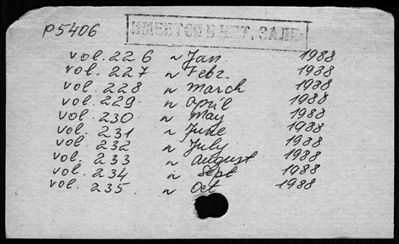 P5406
ИМЕЕТСЯ В ЧИТ. ЗАЛЕ
vol. 226 N Jan. 1988
vol. 227 N Febr. 1988
vol. 228 N March 1988
vol. 229 N April 1988
vol. 230 N May 1988
vol. 231 N June 1988
vol. 232 N July 1988
vol. 233 N August 1988
vol. 234 N Sept 1988
vol. 235 N Oct 1988